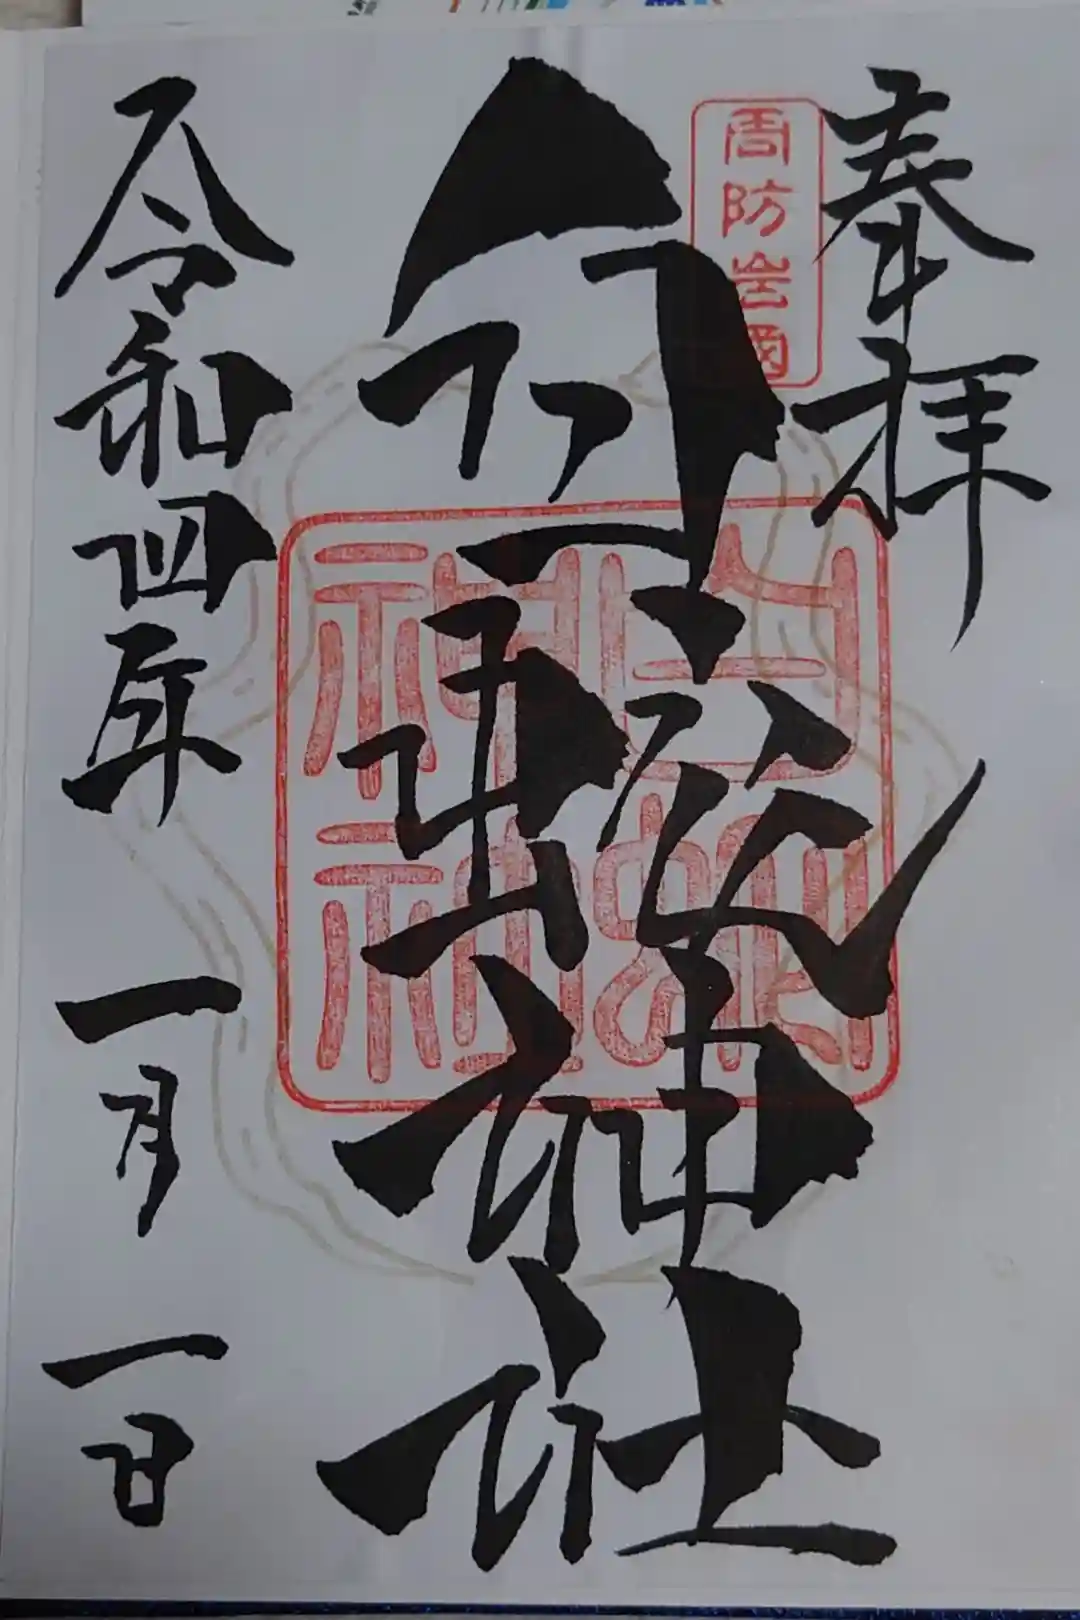 奉拝
周防岩國
白蛇神社
白蛇神社
令和四年一月一日